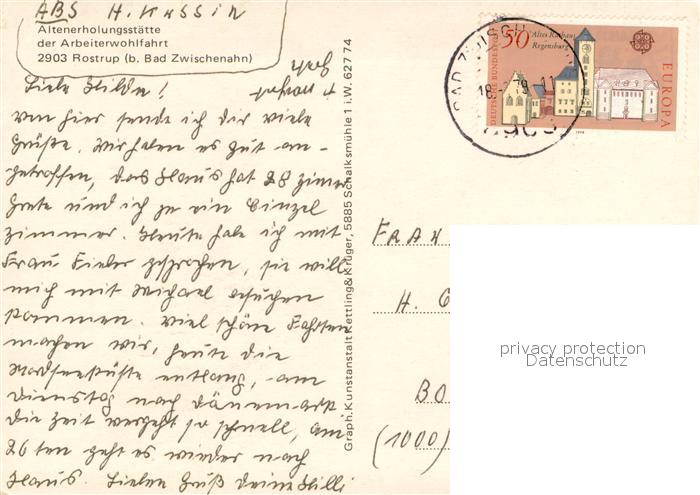 ABS H. Kassin
Altenerholungsstätte
der Arbeiterwohlfahrt
2903 Rostrup (b. Bad Zwischenahn)
Liebe Hilde!
von hier sende ich dir viele
Grüße. Wir haben es gut an-
getroffen, das Haus hat 28 Zimm
Grete und ich je ein Einzel
zimmer. Heute habe ich mit
Frau gesprochen, sie will
mich mit Michael besuchen
kommen. Viel schöne Fahrten
machen wir, heute die
Nordseeküste entlang, am
Dienstag nach Dänemark
die Zeit vergeht so schnell, am
26 ten geht es wieder nach
Haus. Lieben Gruß Deine Milli
Graph. Kunstanstalt Kettling & Krüger, 5885 Schalksmühle 1 i.W. 627 74
DEUTSCHE BUNDESPOST
50 Altes Rathaus
Regensburg
EUROPA
1978
BAD ZWISCH
18 79 11
2903
FRAU
H. G
BO
(1000)
privacy protection
Datenschutz